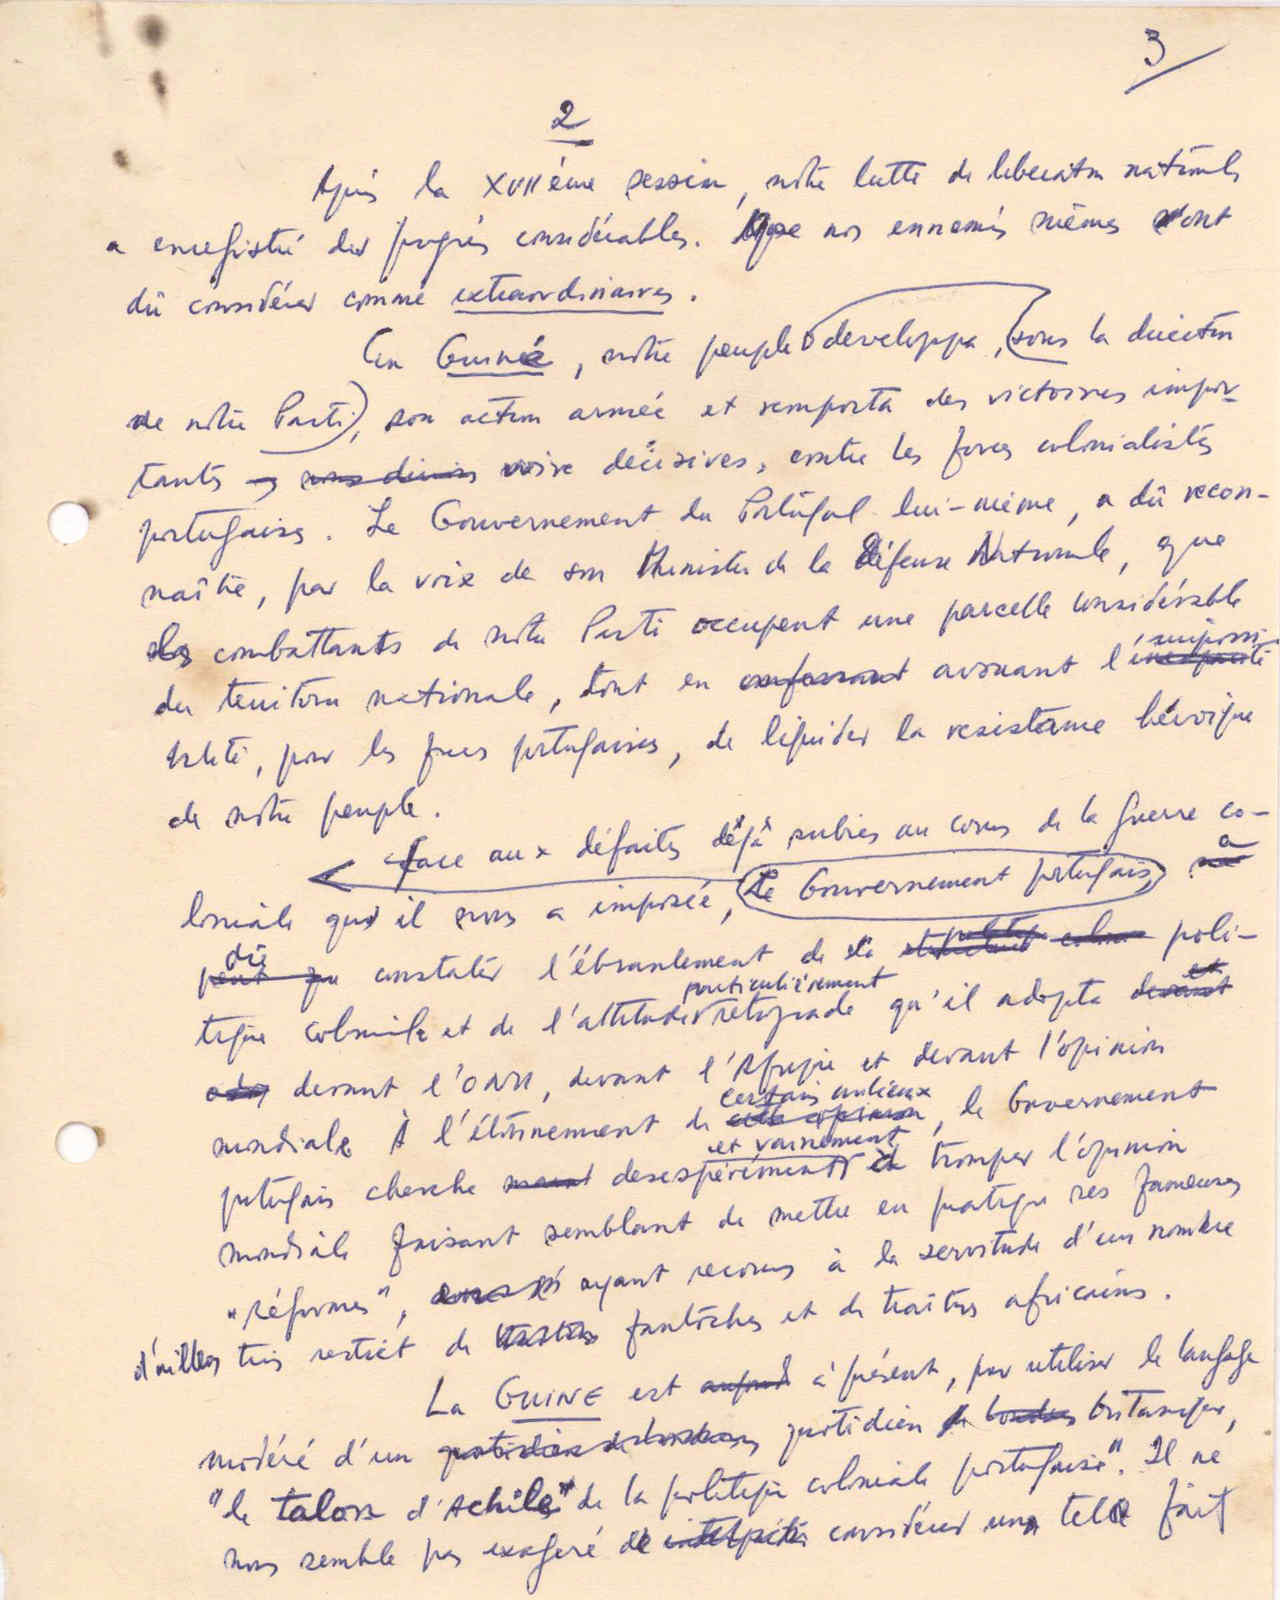 3
2
Après la XVIIème session, notre lutte de libération nationale
a enregistré des progrès considérables. Que nos ennemis mêmes ont
dû considérer comme extraordinaires.
En Guinée, notre peuple developpa, sous la direction
de notre Parti, son action armée et remporta des victoires impor-
tants voire décisives, contre les forces colonialistes
portugaises. Le Gouvernement du Portugal lui-même, a dû recon-
naître, par la voix de son Ministre de la Défense Nationale, que
des combattants de notre Parti occupent une parcelle considérable
du territoire nationale, tout en confessant avouant l'impossi-
bilité, pour les forces portugaises, de liquider la resistance héroïque
de notre peuple.
Face aux défaites déjà subies au cours de la guerre co-
loniale qu'il nous a imposée, Le Gouvernement portugais a
dû
peut que constater l'ébranlement de sa poli-
particulièrement
tique coloniale et de l'attitude rétrograde qu'il adopta devant
devant l'ONU, devant l'Afrique et devant l'opinion
certains milieux
mondiale. À l'étonnement de cette opinion, le Gouvernement
et vainement
portugais cherche desespérément à tromper l'opinion
mondiale faisant semblant de mettre en pratique ses fameuses
"réformes", ayant recours à la servitude d'un nombre
d'ailleurs très restrict de fantoches et de traîtres africains.
La GUINE est à présent, pour utiliser le langage
modéré d'un quotidien de londres quotidien britanique,
"le talon d'Achile" de la politique coloniale portugaise". Il ne
nous semble pas exageré de considérer un tel fait